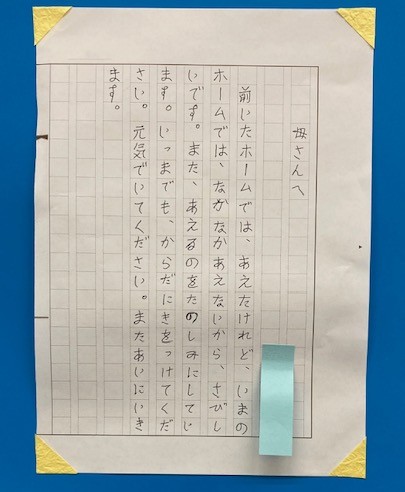 母さんへ
前いたホームでは、あえたけれど、いまの
ホームでは、なかなかあえないから、さびし
いです。また、あえるのをたのしみにしてい
ます。いつまでも、からだにきをつけてくだ
さい。元気でいてください。またあいにいき
ます。